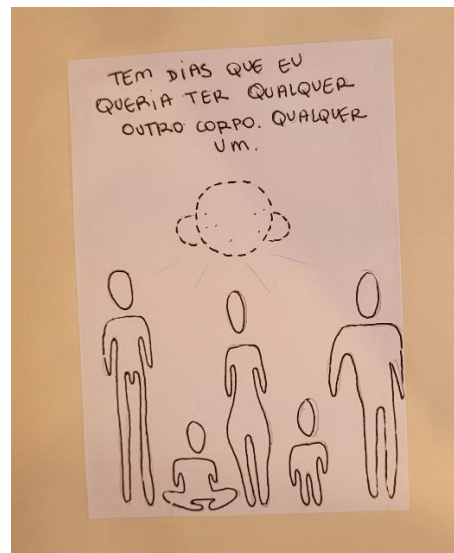 TEM DIAS QUE EU
QUERIA TER QUALQUER
OUTRO CORPO. QUALQUER
UM.